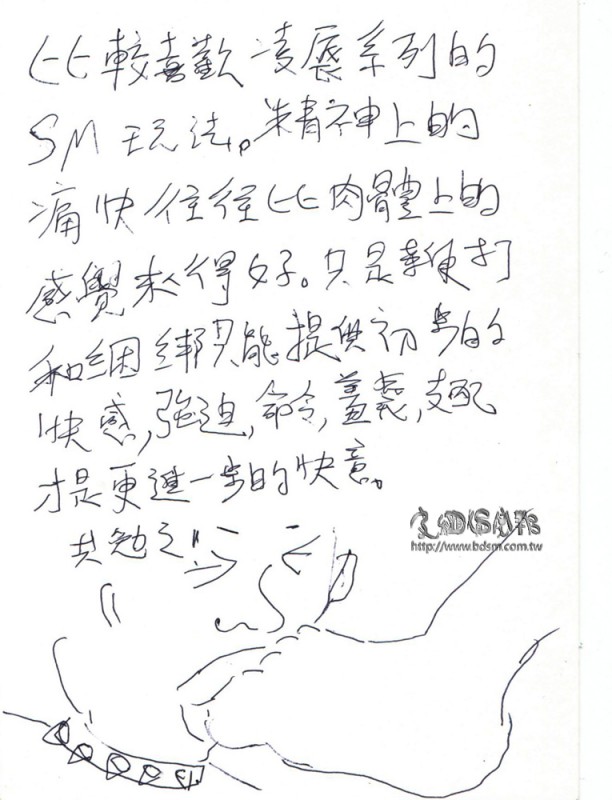 比較喜歡凌辱系列的
SM玩法。精神上的
痛快往往比肉體上的
感覺來得好。只是鞭打
和綑綁只能提供初步的
快感,強迫,命令,羞辱,支配
才是更進一步的快意。
共勉之!!
http://www.bdsm.com.tw